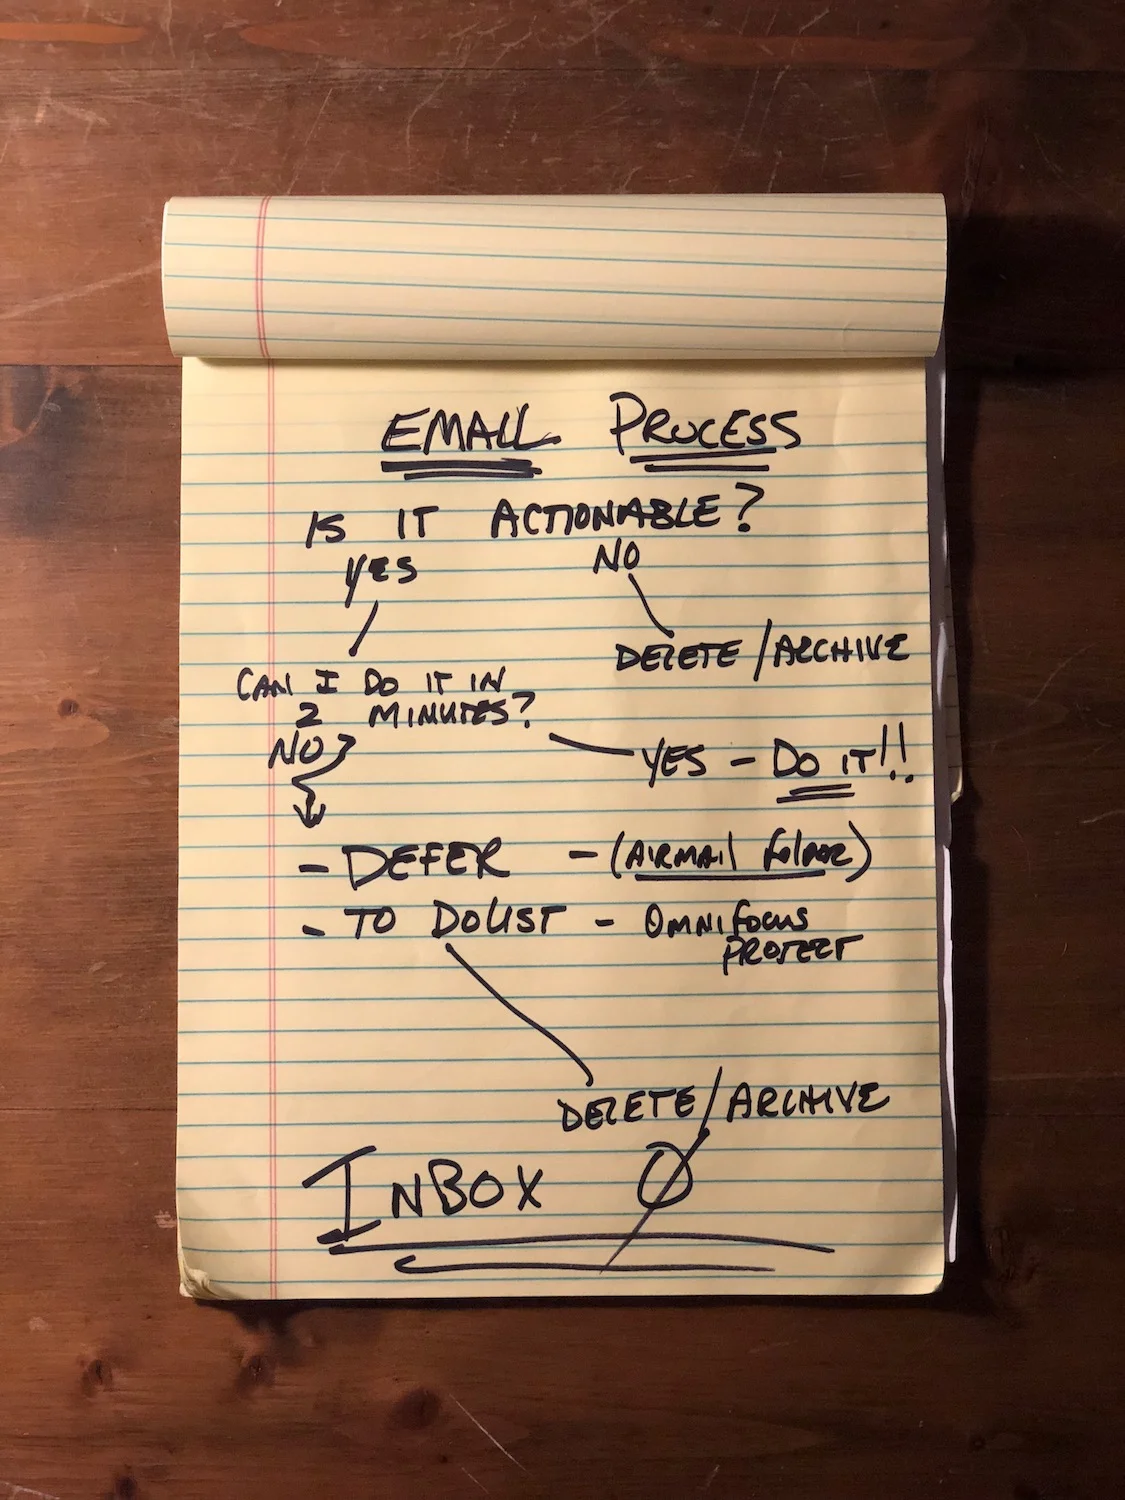 EMAIL PROCESS
IS IT ACTIONABLE?
YES NO
DELETE/ARCHIVE
CAN I DO IT IN
2 MINUTES?
NO?
YES - DO IT!!
- DEFER - (AIRMAIL folder)
- TO DO LIST - OMNIFOCUS
PROJECT
DELETE/ARCHIVE
INBOX Ø